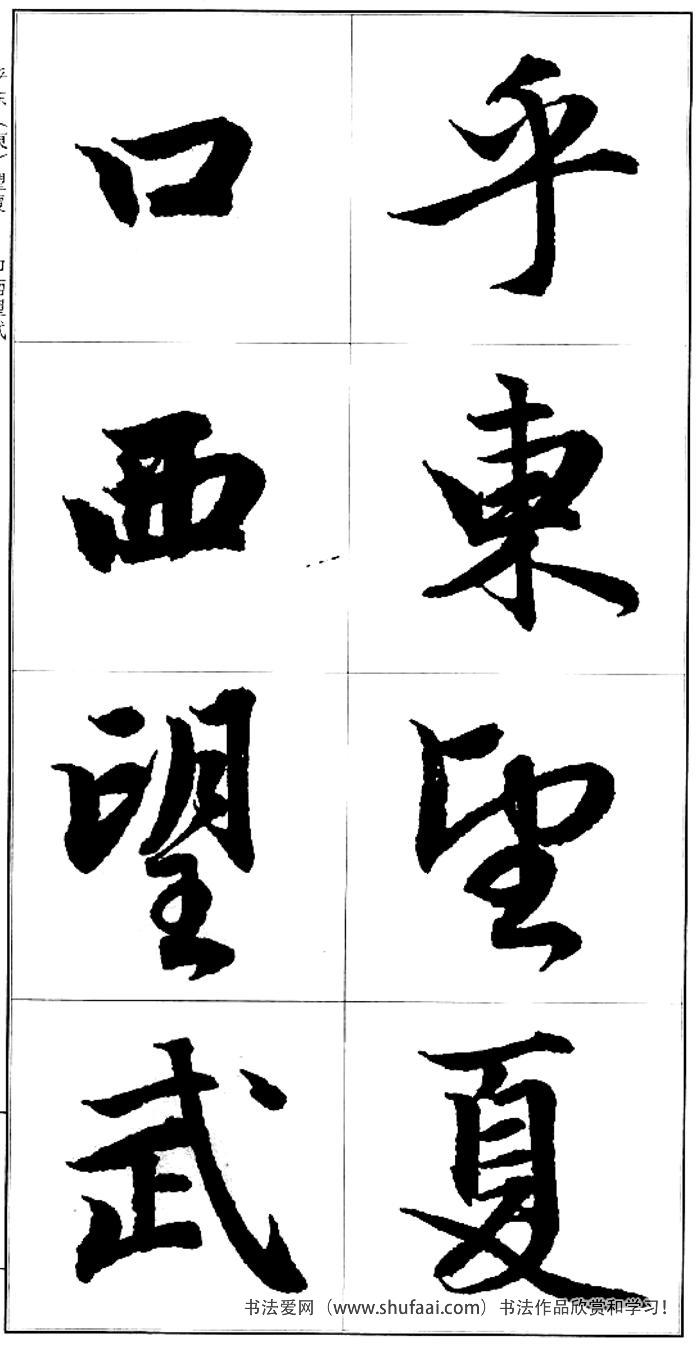 乎東望夏
口西望武
书法爱网（www.shufaai.com）书法作品欣赏和学习！